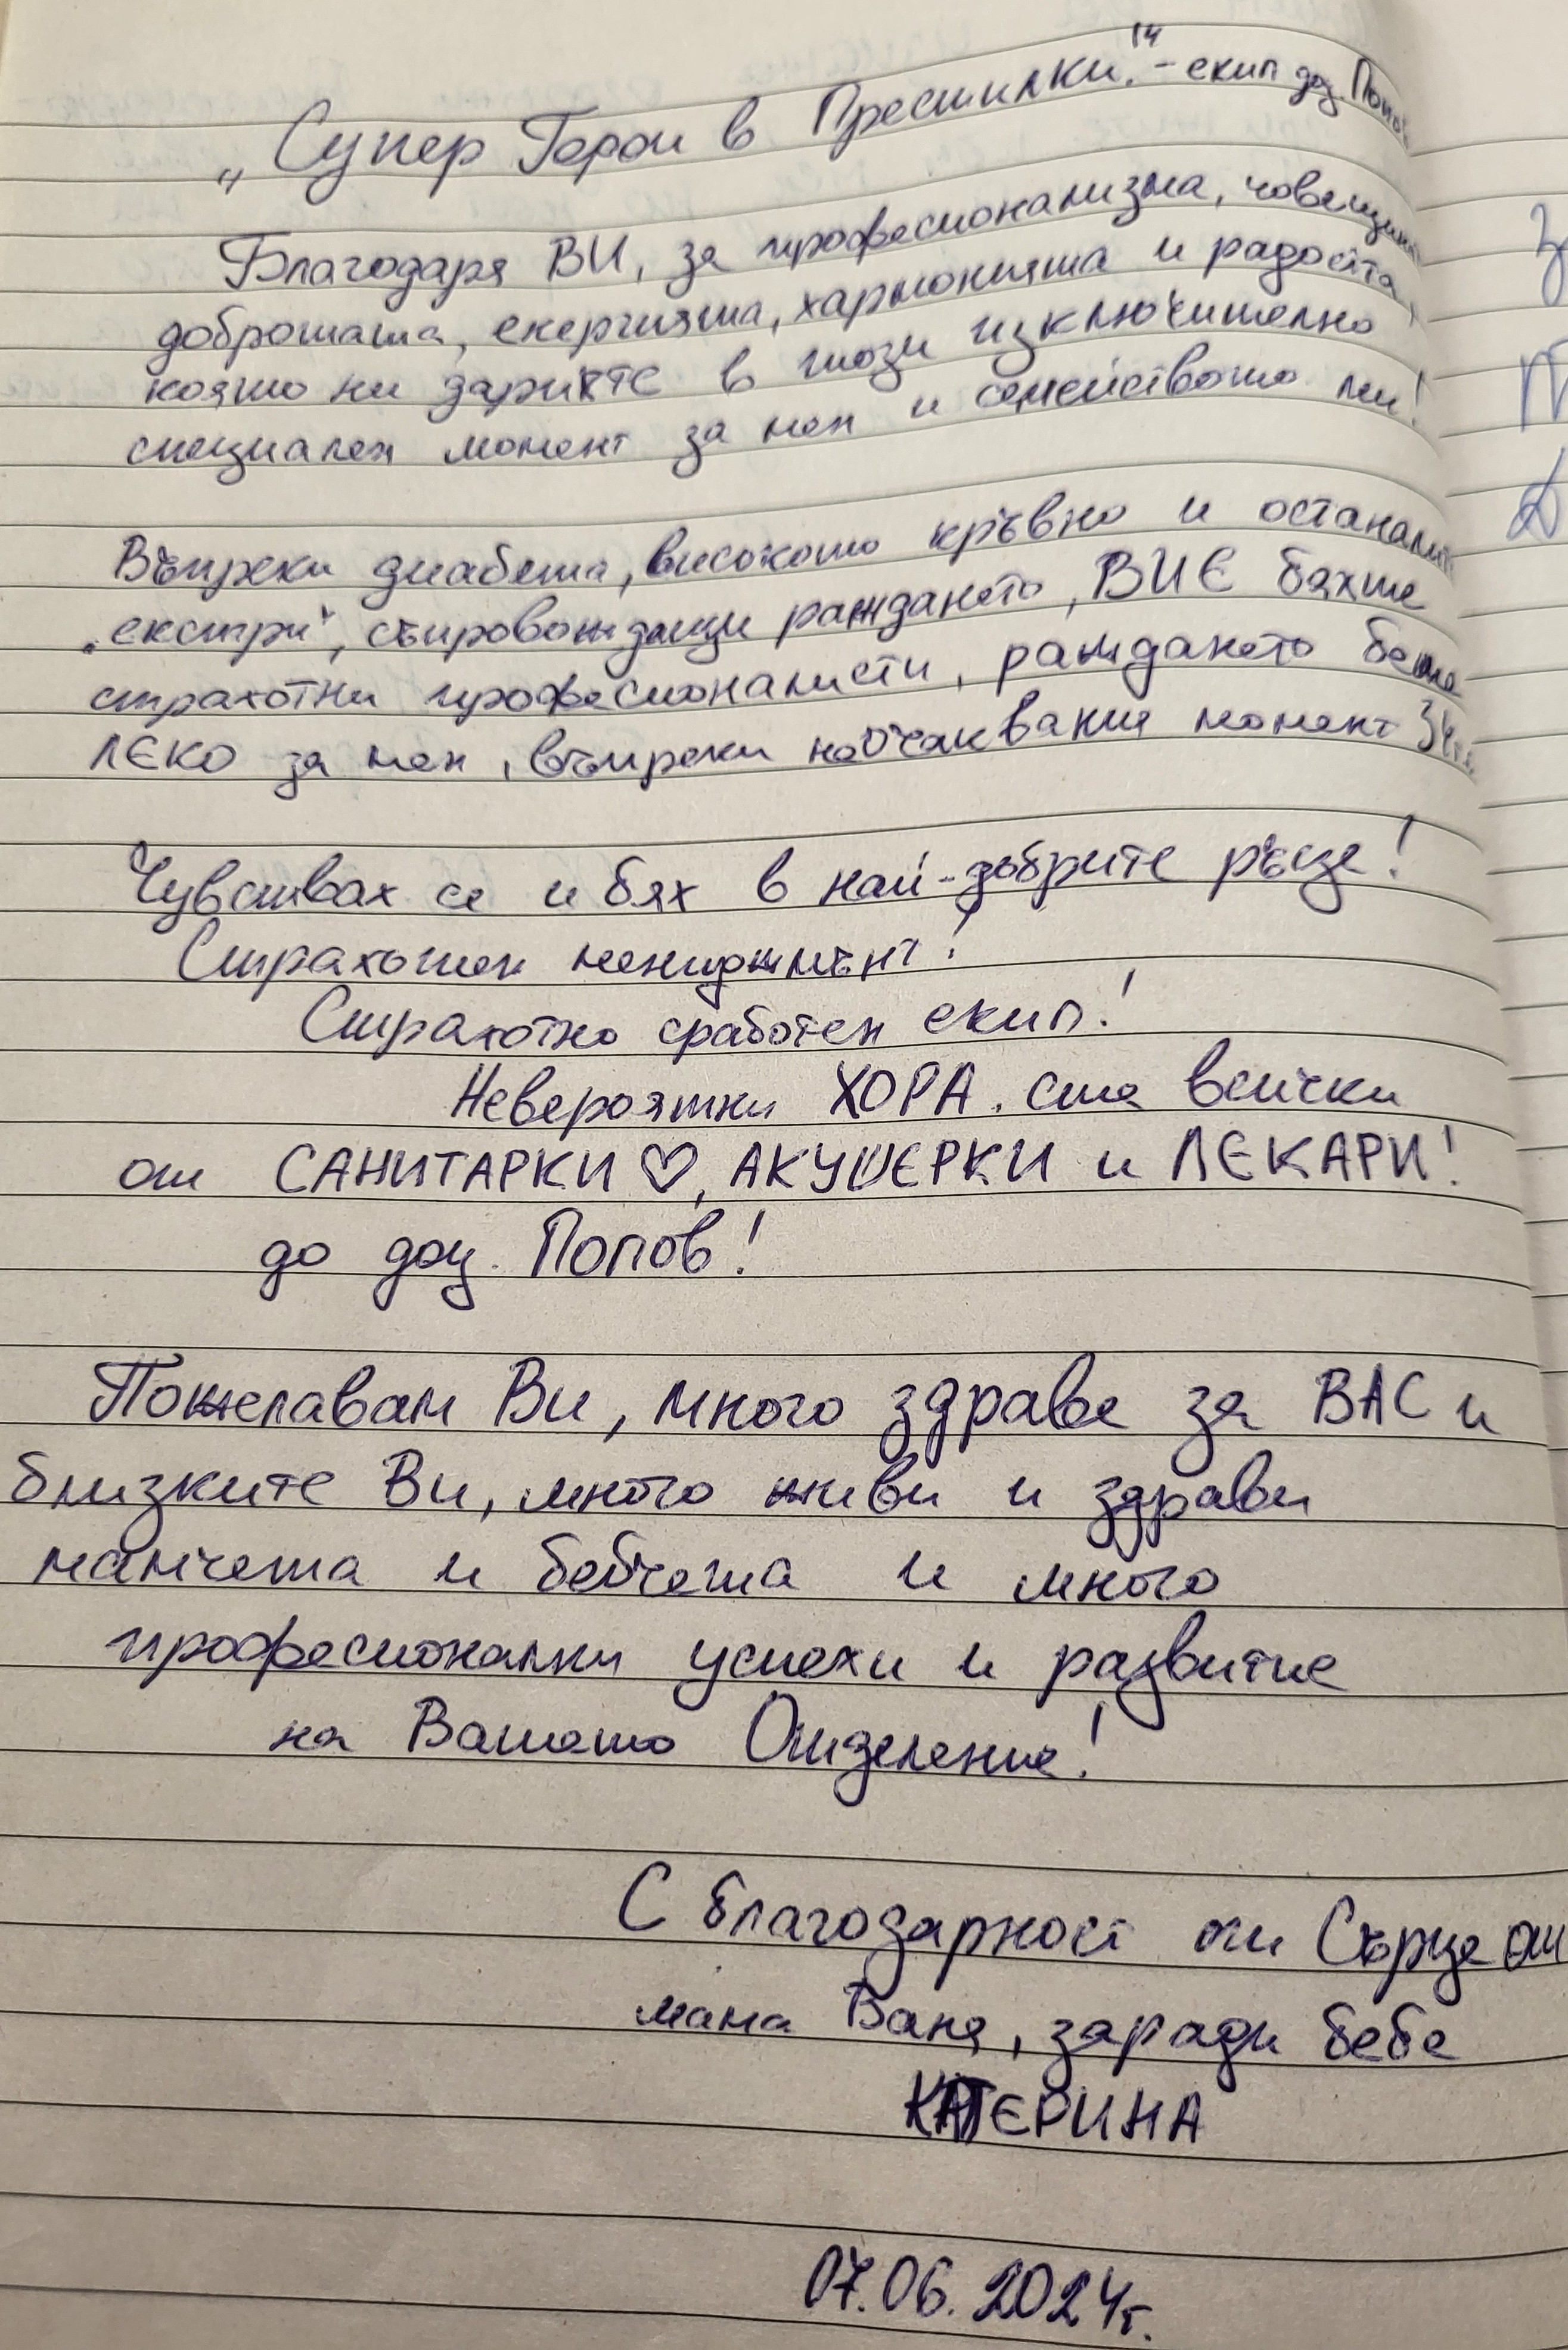 „Супер Герои в Престилки." - екип доц. Попов
Благодаря ВИ, за професионализма, човещината
добротата, енергията, хармонията и радостта,
която ни дарихте в този изключително
специален момент за мен и семейството ми!
Въпреки диабета, високото кръвно и останалите
„екстри", съпровождащи раждането, ВИЕ бяхте
страхотни професионалисти, раждането беше
ЛЕКО за мен, въпреки неочаквания момент
Чувствах се и бях в най-добрите ръце!
Страхотен мениджмънт!
Страхотно сработен екип!
Невероятни ХОРА. сте всички
от САНИТАРКИ ♡, АКУШЕРКИ и ЛЕКАРИ!
до доц. Попов!
Пожелавам Ви, много здраве за ВАС и
близките Ви, много живи и здрави
мамчета и бебчета и много
професионални успехи и развитие
на Вашето Отделение!
С благодарност от Сърце от
мама Ваня, заради бебе
КАТЕРИНА
07.06.2024г.